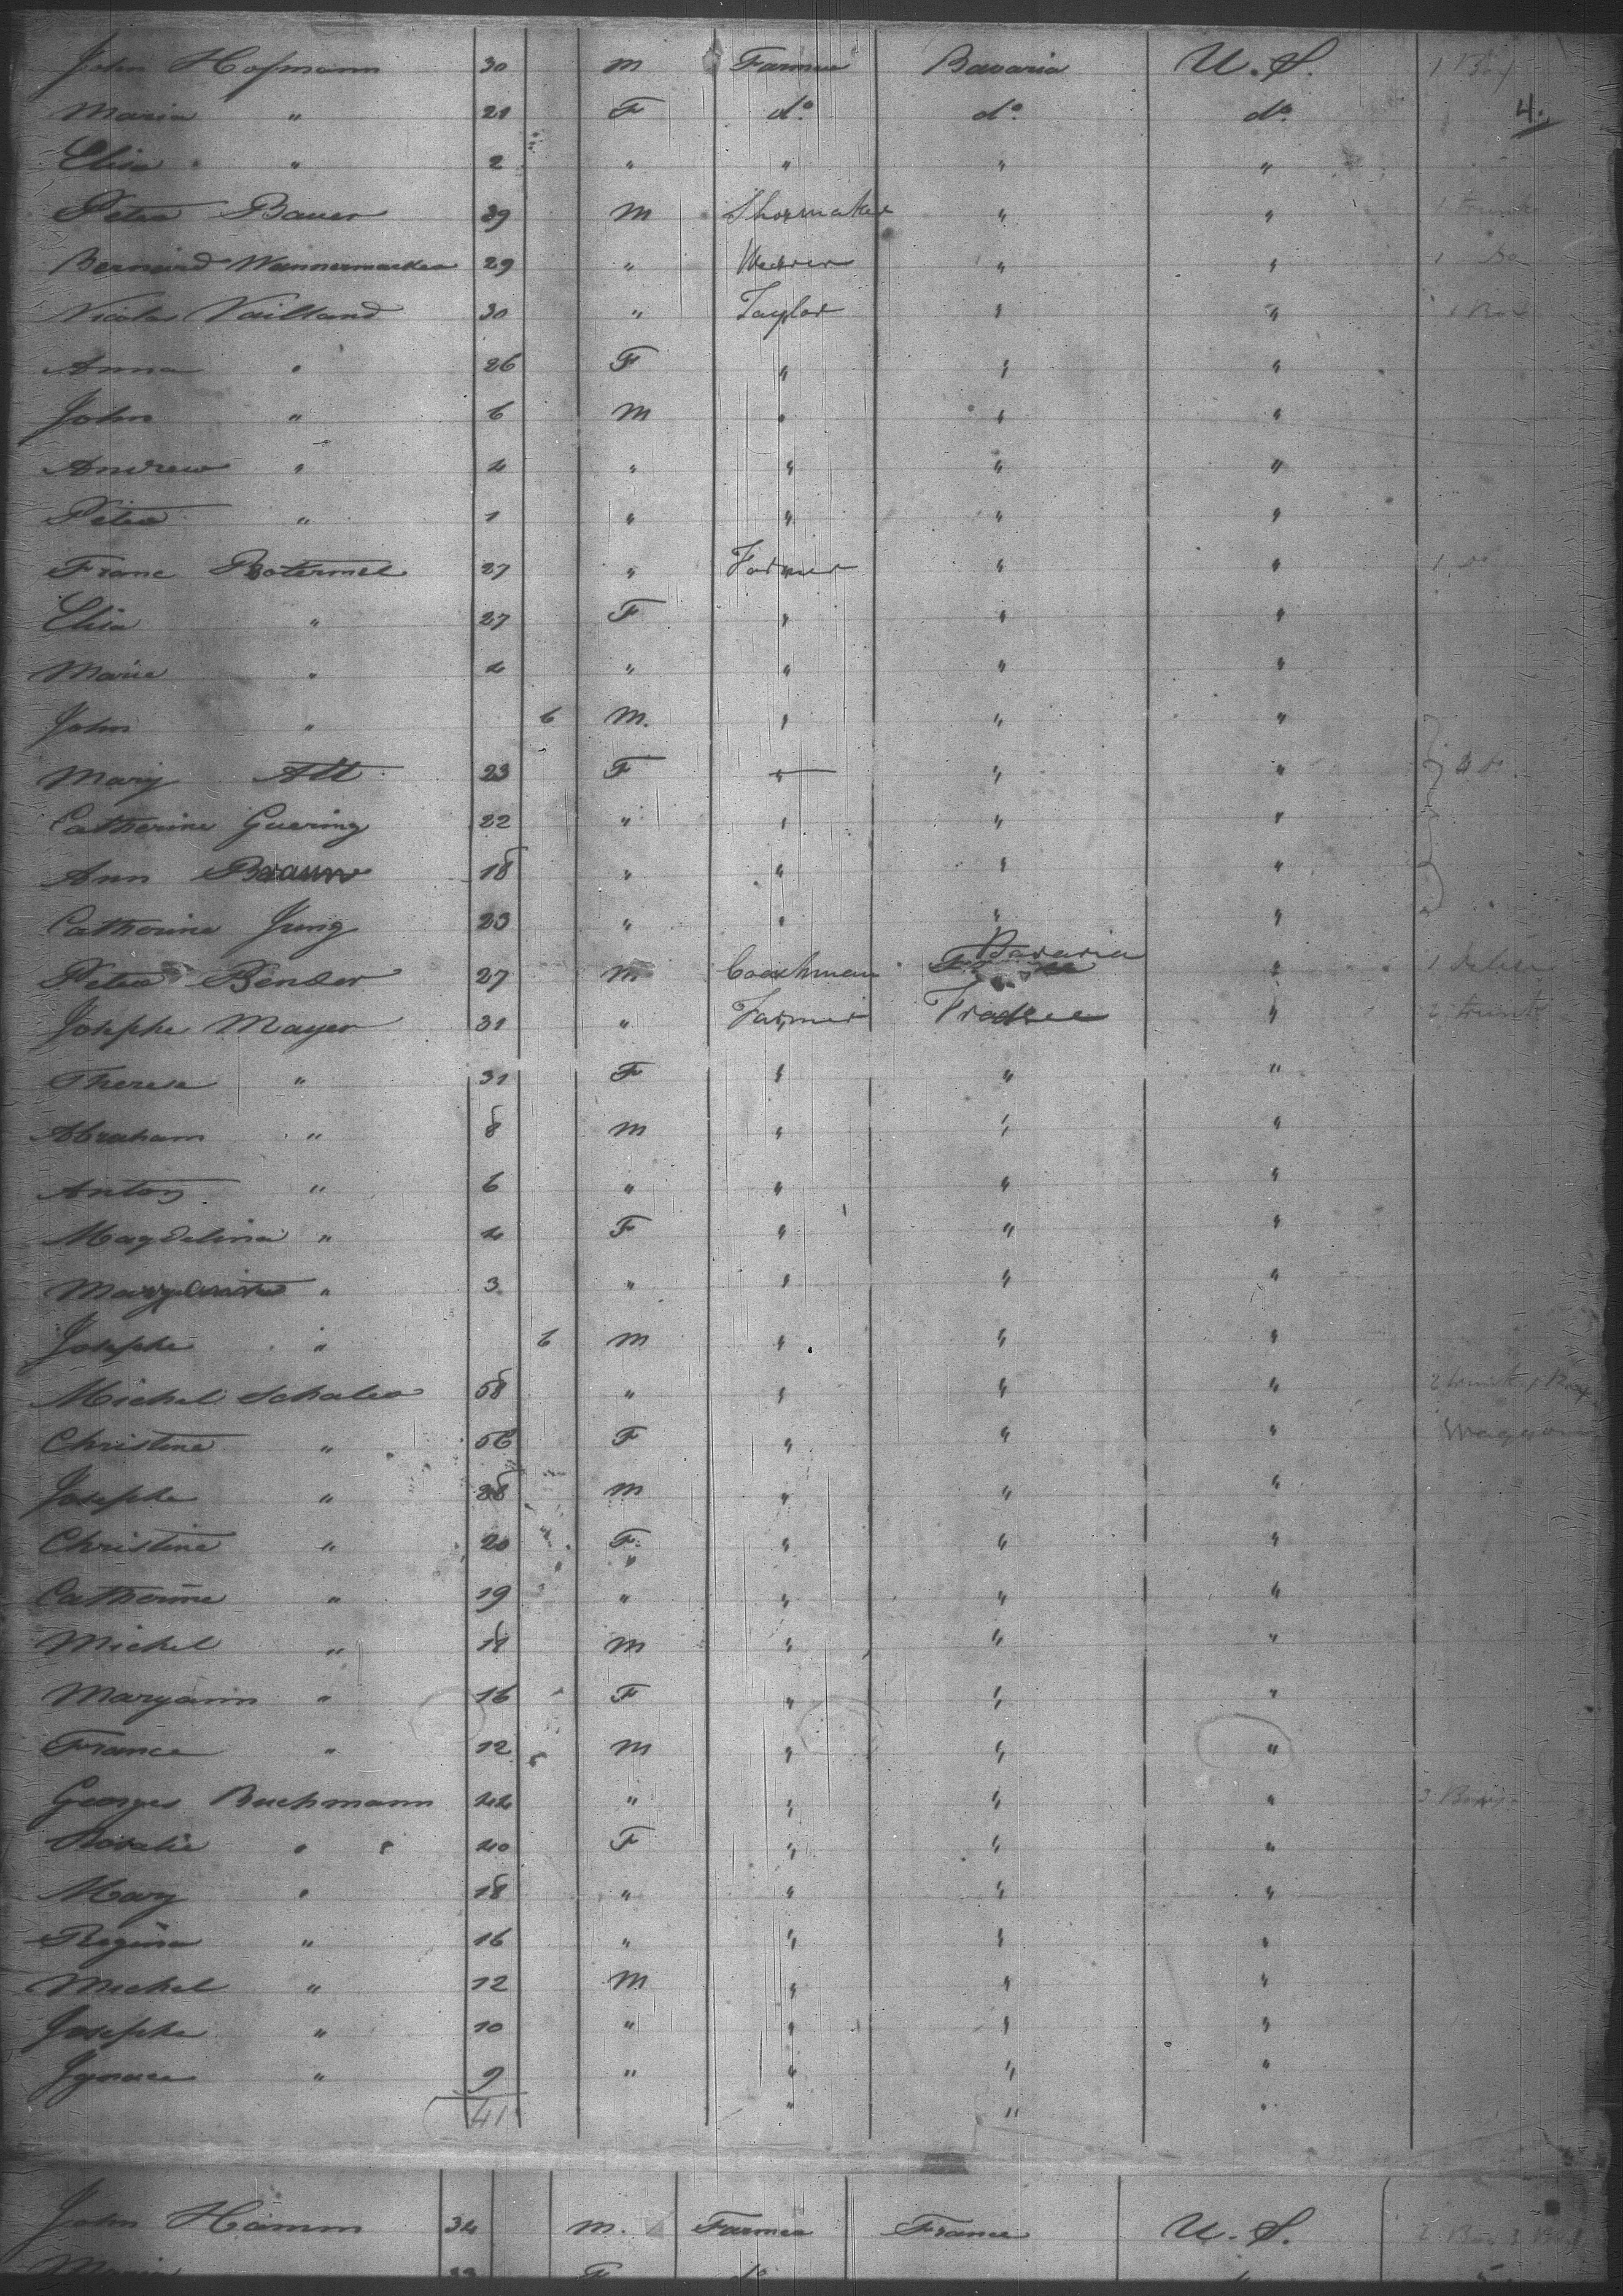 John Hofmann 30 M Farmer Bavaria U.S. 1 Box
4.
Maria " 21 F do do do
Elisa " 2 " " " "
Peter Bauer 29 M Shoemaker " " 1 trunk
Bernard Wannermacher 29 " Weaver " " 1 Do
Nicolas Vailland 30 " Taylor " " 1 Box
Anna " 26 F " " "
John " 6 M " " "
Andrew " 4 " " " "
Peter " 1 " " " "
Franc Botermel 27 " Farmer " " 1 do
Elisa " 27 F " " "
Marie " 4 " " " "
John " 6 M. " " "
Mary Alt 23 F " " "
Catherine Guering 22 " " " "
Ann Braun 18 " " " "
Catherine Jung 23 " " " "
Peter Bender 27 M Coachman Bavaria "
Josephe Mayer 31 " Farmer France " 2 trunk
Theresa " 31 F " " "
Abraham " 8 M " " "
Anton " 6 " " " "
Magdelina " 4 F " " "
" 3 " " " "
Josephe " 6 M " " "
Michel Schaler 58 " " " " 2 trunk 1 Box
Christine " 56 F " " " Waggon
Josephe " 28 M " " "
Christine " 20 F " " "
Catherine " 19 " " " "
Michel " 18 M " " "
Maryann " 16 F " " "
France " 12 M " " "
Georges Buchmann 44 " " " " 3 Boxes
Rosalie " 40 F " " "
Mary " 18 " " " "
Regina " 16 " " " "
Michel " 12 M " " "
Josephe " 10 " " " "
Ignace " 9 " " " "
41 " " "
John Hamm 34 M. Farmer France U.S. 2 Box
Maria 33 F do